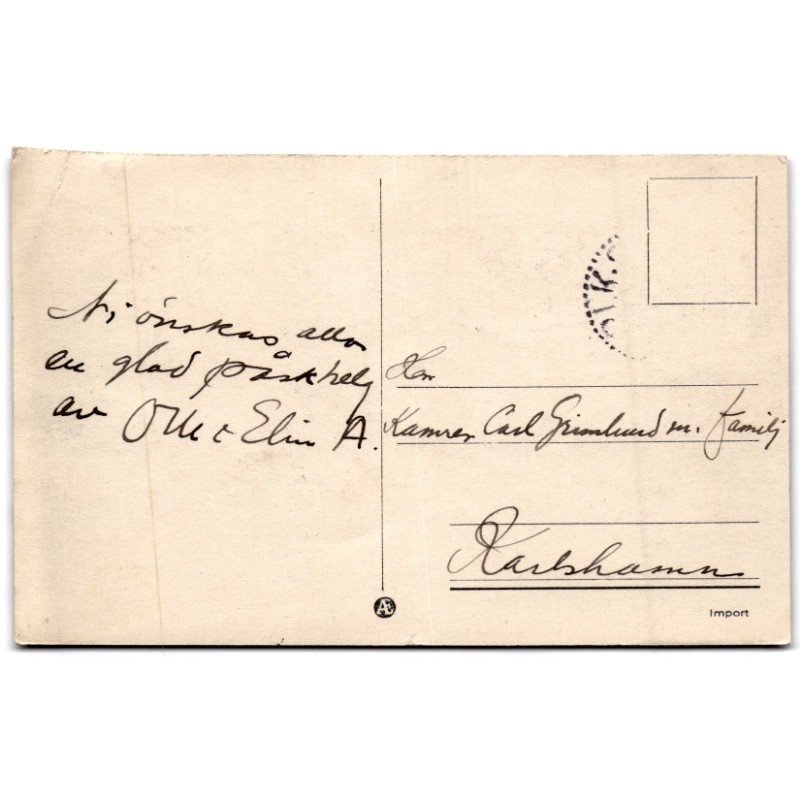 Ni önskas alla
en glad påskhelg
av Olle & Elin A.
Herr
Kamrer Carl Grimlund m. familj
Karlshamn
Æ
Import